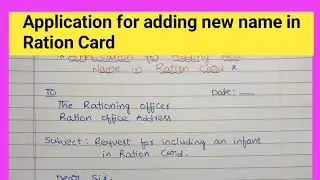 Application for adding new name in
Ration Card
* Application for Adding New
Name in Ration Card *
To
Date: ___
The Rationing officer
Ration office Address
Subject: Request for including an infant
in Ration Card.
Dear Sir,